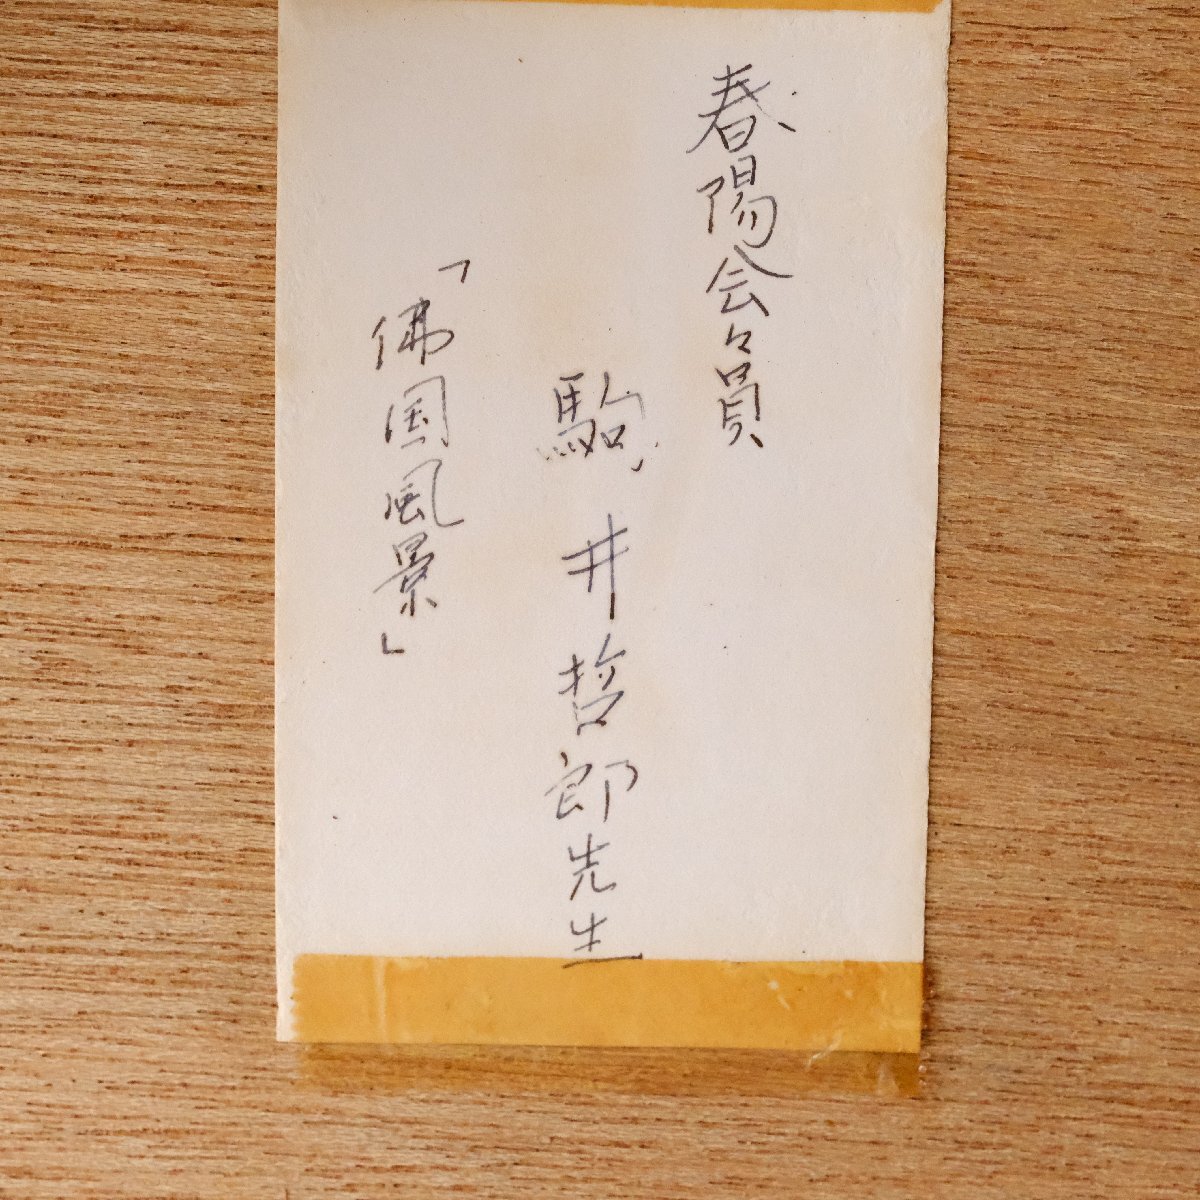 春陽会々員
駒井哲郎先生
「佛国風景」